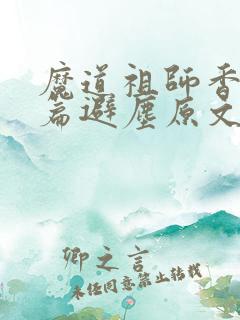 魔道祖师香
篇避塵原文
卿之言
未经同意禁止转载